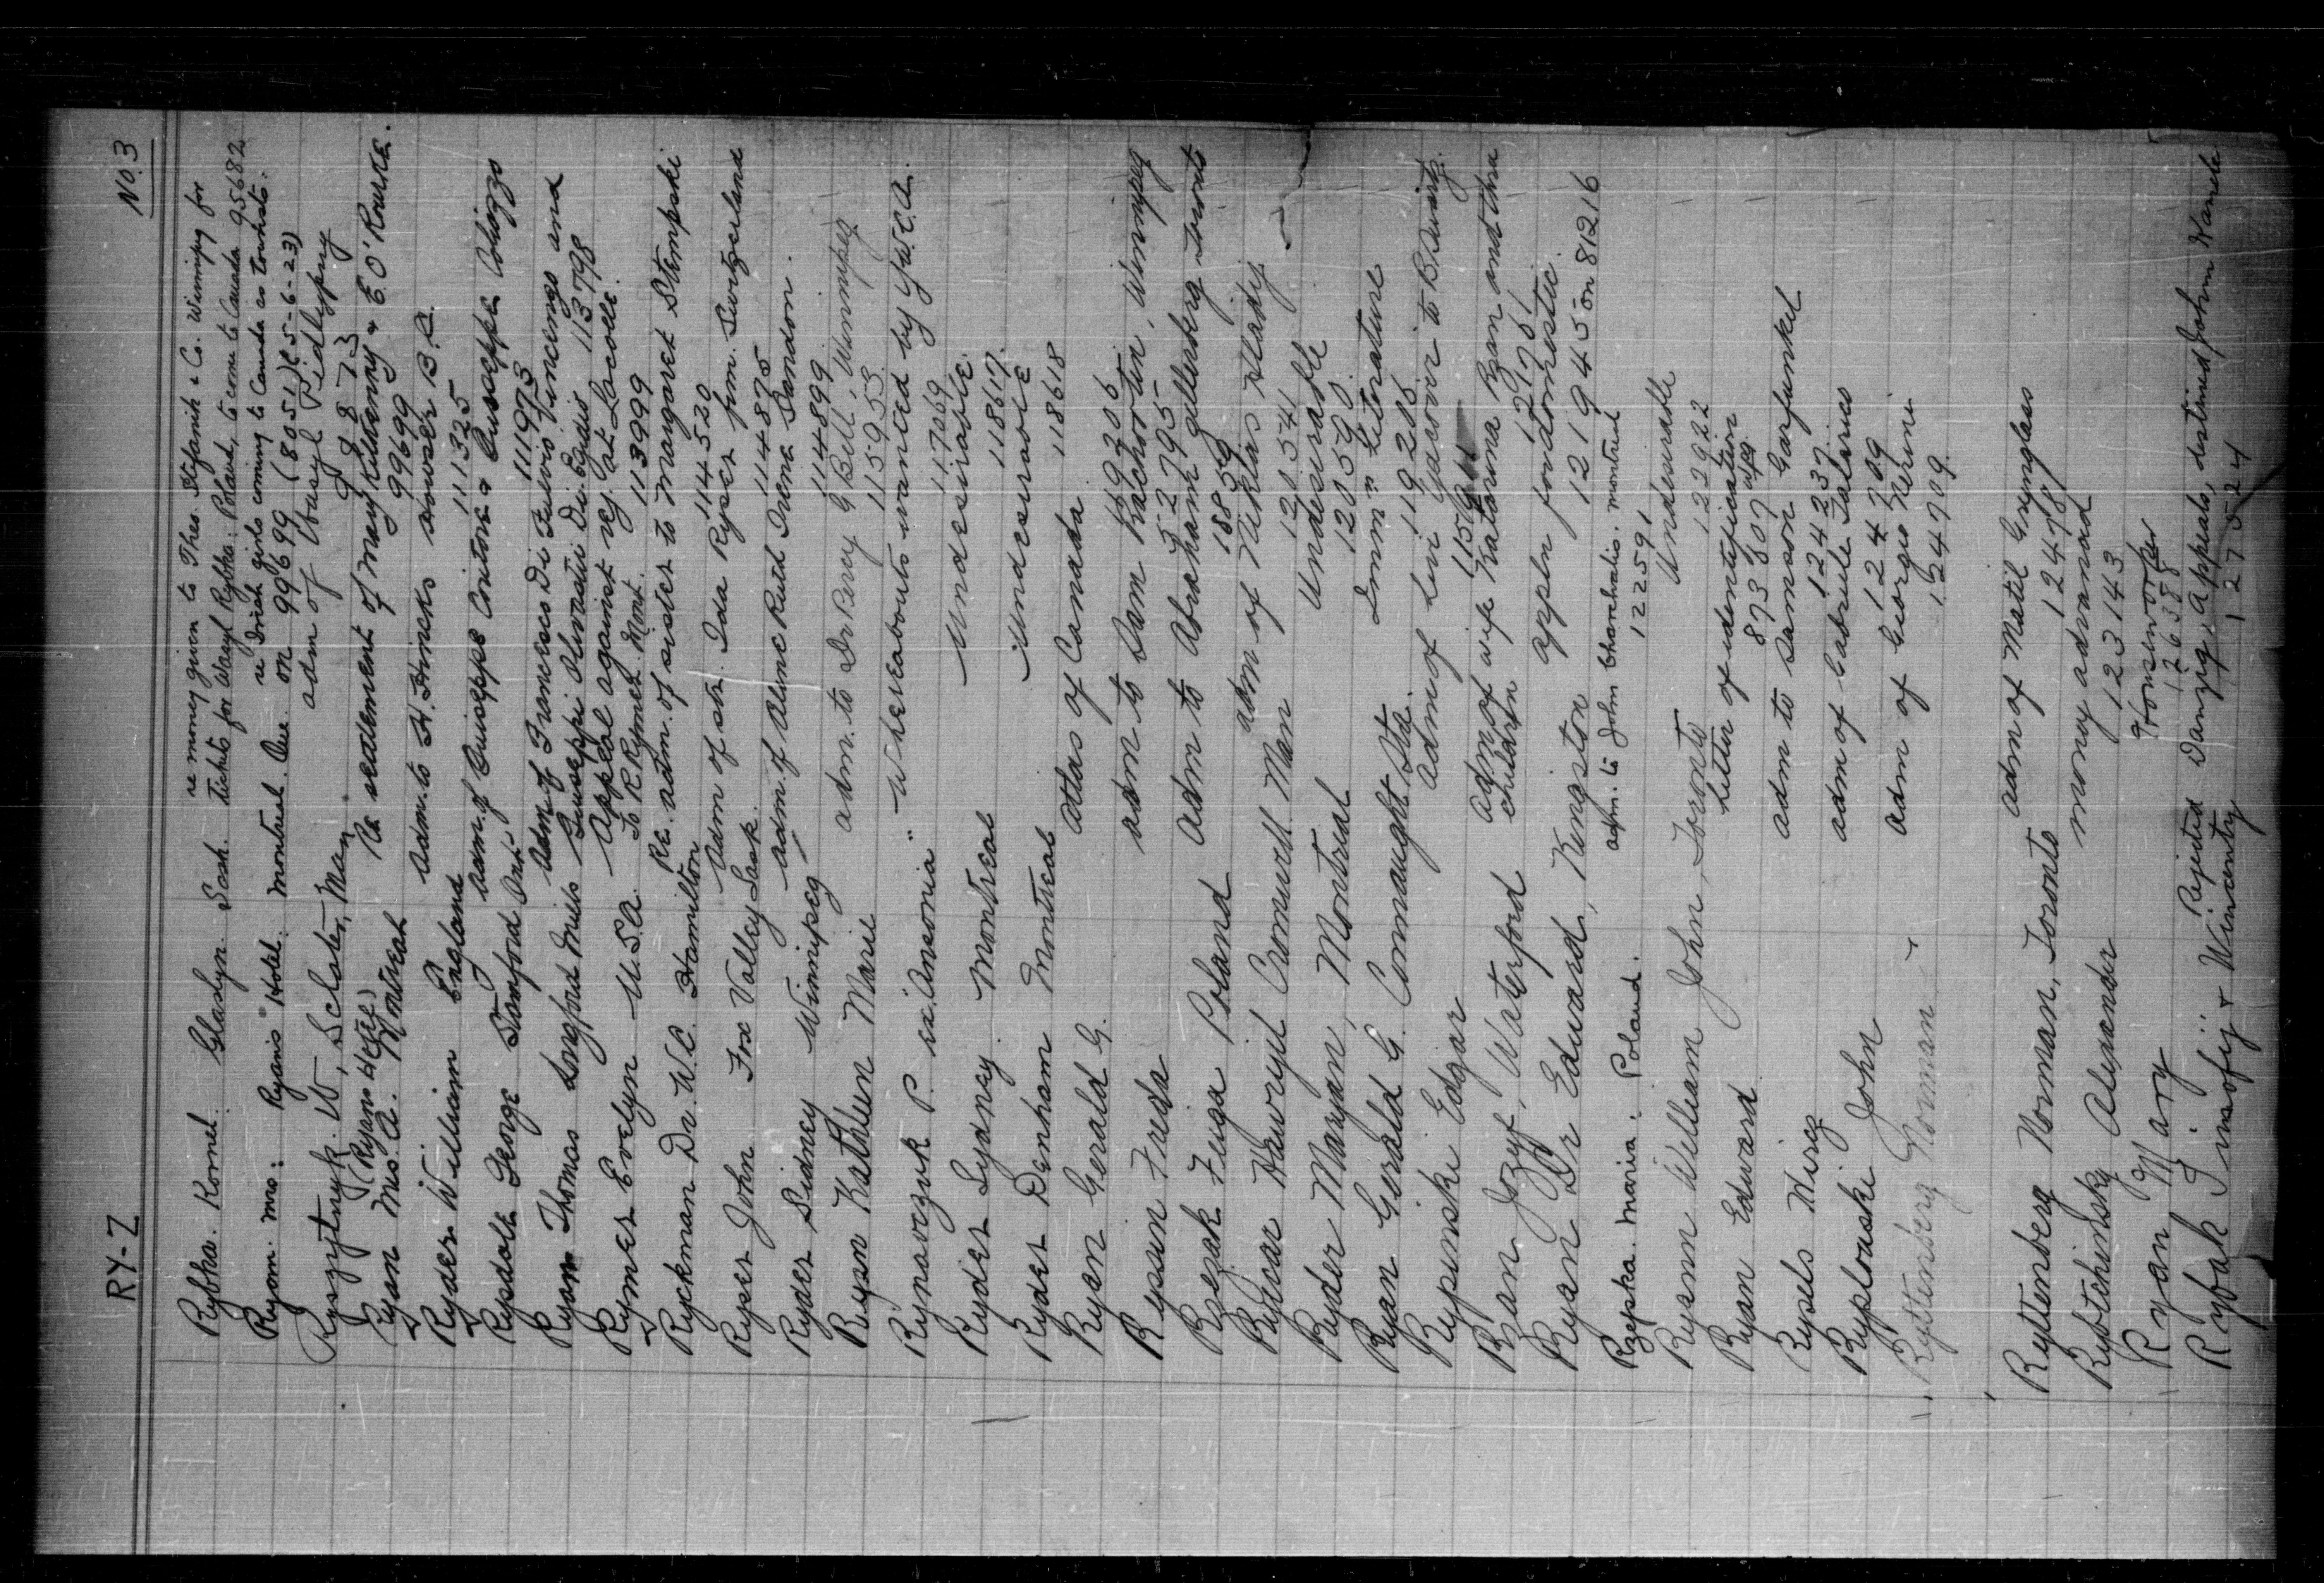 RY-Z
No. 3
Rybka. Kornel. Glaslyn Sask. re money given to Thos. Stefanik & Co. Winnipeg for
tickets for Wasyl Rybka: Poland, to come to Canada 95682
Ryan. Mrs: Ryan's Hotel. Montreal. Que. re Irish girls coming to Canada as tourists.
on 99699 (8051)(25-6-23)
Ryszytnyk. W, Sclater, Man adm of Wasyl Pidlypny
9873
(Ryans Hotel)
Ryan Mrs. A. Montreal Re settlement of Mary Kilkenny & E. O'Rourke.
99699
Ryder William England adm. to H. Hincks B.C.
111325
Rysdale George Stamford Ont adm. of Guiseppe Contore & Guiseppe Colizzo
111973
Ryan Thomas Longford Mills adm. of Francesco Di Fulvio Vincenzo and
Guiseppi Olivastri Di Egidio 113798
Rymer Evelyn U.S.A. Appeal against rej. at Lacolle.
To R Rymer. Mont. 113999
Ryckman Dr. W.C. Hamilton Re. adm. of sister to Margaret Stempski
114520
Ryser John Fox Valley Sask. Adm of sr. Ida Ryser from Switzerland
114875
Ryder Sidney Winnipeg adm. of Ruth Irene Sandon.
114899
Ryan Kathleen Marie adm. to Dr Percy G Bell, Winnipeg
115953
Rynarczuk P. ex "Ansonia" Whereabouts wanted by Y.W.C.A.
117069
Ryder Sydney Montreal Undesirable.
118617.
Ryder Denham Montreal Undesirable
118618
Ryan Gerald G. Atlas of Canada
119205
Rysin Freda adm to Sam Rachootin, Winnipeg
52795
Rezak Fuga Poland adm to Abraham Gellerberg Toronto
18859
Rywar Hawryil Cromwell Man adm of Niklas Hladij
120541
Ryder Maryan, Montreal Undesirable
120590.
Ryan Gerald G. Connaught Sta. Immn Literature
119205
Rypinski Edgar adm of Levi to B Swartz.
Ryan Jozef, Waterford adm of wife Katarina Ryan and three
children 121781
Ryan Dr Edward, Kingston appln for domestic.
121945 on 81216
Rzepka. Maria: Poland. adm. to John Charchalis. Montreal
122591
Ryann William John, Toronto Undesirable
122922
Ryan Edward Letter of identification
873807
Rysels Mirez adm to Samson Garfunkel
124237
Ryplouski John adm of Gabriele Talarico
124709
Ryttenberg Norman adm of Georges Nerini
124709.
Ryttenberg Norman, Toronto adm of Matil Grynglass
124478
Rybtchinsky Alexander money advanced
123143
Ryan Mary Houseworker
126388
Rybak Zinofij & Wincenty Rejected Danzig, appeals, destined John Hamela
127524